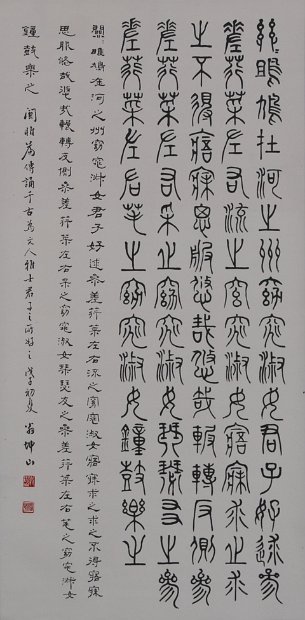 關雎鳩在河之州窈窕淑女君子好逑參
差荇菜左右流之窈窕淑女寤寐求之求
之不得寤寐思服悠哉悠哉輾轉反側參
差荇菜左右采之窈窕淑女琴瑟友之參
差荇菜左右芼之窈窕淑女鐘鼓樂之
關雎鳩在河之州窈窕淑女君子好逑參差荇菜左右流之窈窕淑女寤寐求之求之不得寤寐
思服悠哉悠哉輾轉反側參差荇菜左右采之窈窕淑女琴瑟友之參差荇菜左右芼之窈窕淑女
鐘鼓樂之 關雎篇傳誦千古為文人雅士君子之所好之 戊子初夏 翁坤山